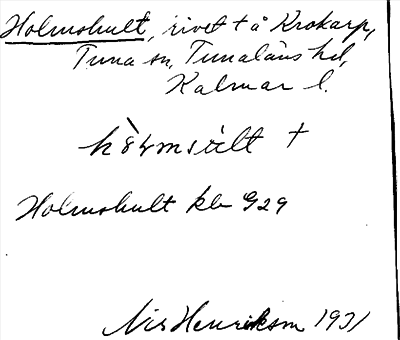 Holmshult, rivet t å Krokarp,
Tuna sn, Tunaläns hd,
Kalmar l.
Holmshult kb G29
Nis Henrikson 1931